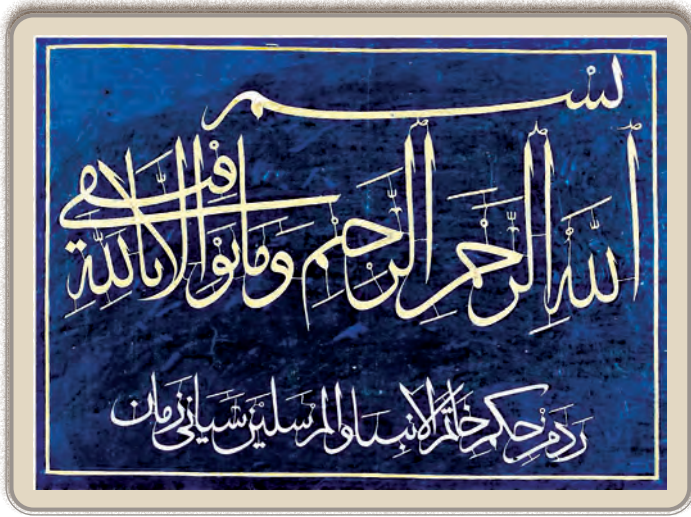 بسم
الله الرحمن الرحيم وما توفيقى الا بالله
حكم خاتم الانبيا والمرسلين زمان